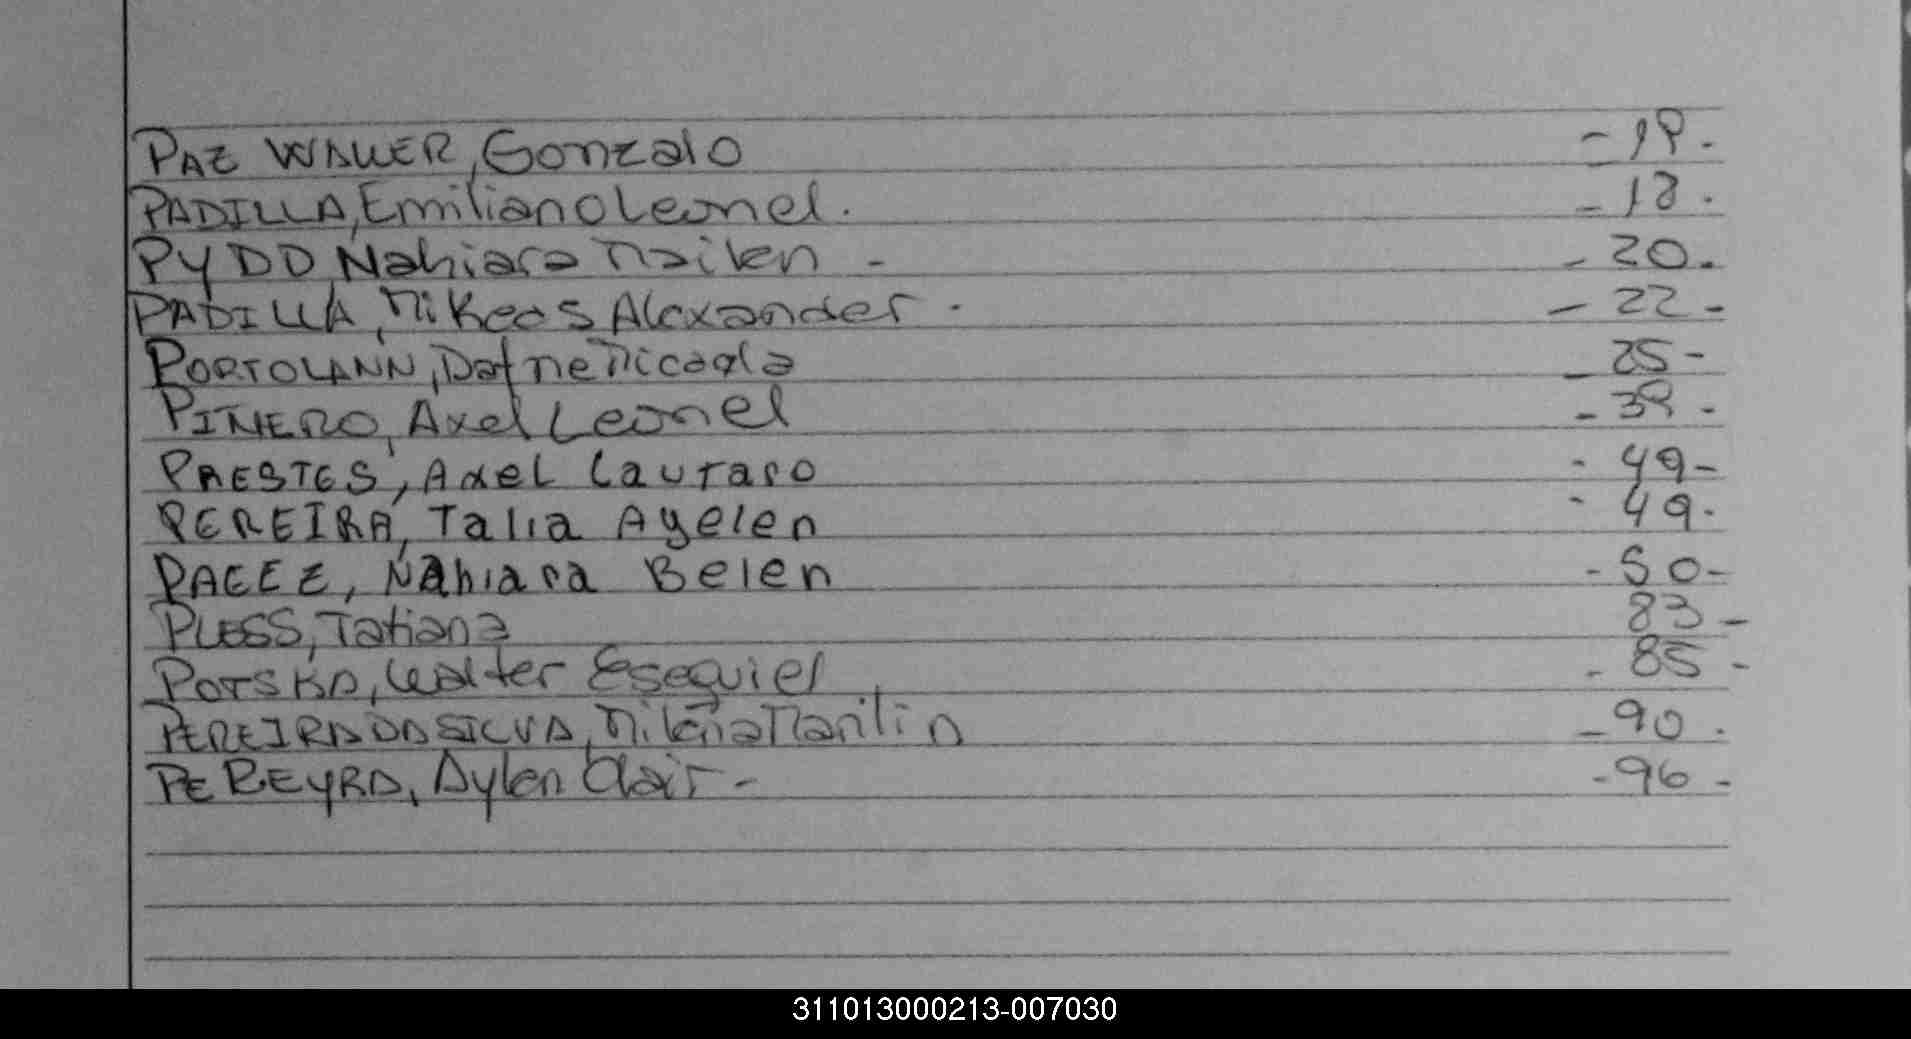 PAZ WALLER, Gonzalo - 19.
PADILLA, Emiliano Leonel. - 18.
PYDD, Nahiara Mailen - - 20.
PADILLA, Mikeas Alexander - - 22 -
PORTOLANN, Dafne Micaela - 25 -
PIÑERO, Axel Leonel - 39 -
PRESTES, Axel Lautaro - 49 -
PEREIRA, Talia Ayelen - 49.
PAEEZ, Nahiara Belen - 50 -
PLESS, Tatiana 83 -
POTSKA, Walter Esequiel - 85 -
PEREIRA DA SILVA, Milena Marilin - 90 .
PEREYRA, Aylen Clair - - 96 -
311013000213-007030